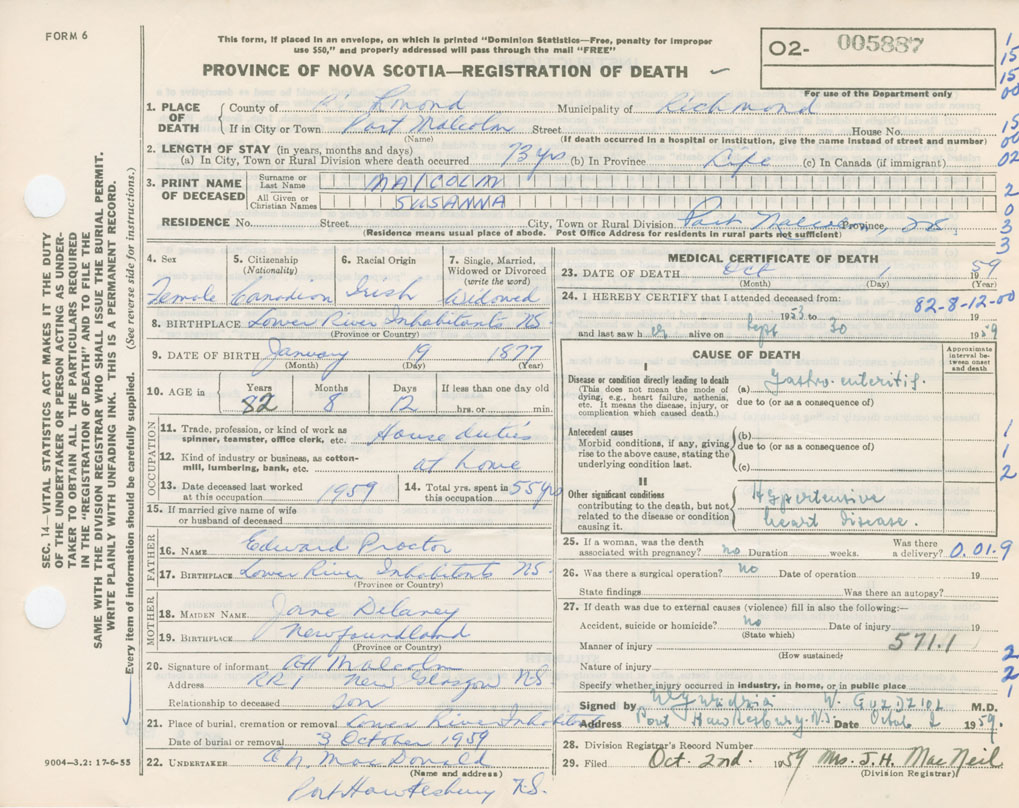 FORM 6
This form, if placed in an envelope, on which is printed "Dominion Statistics—Free, penalty for improper
use $50," and properly addressed will pass through the mail "FREE"
PROVINCE OF NOVA SCOTIA—REGISTRATION OF DEATH
O2- 005887
For use of the Department only
1. PLACE OF DEATH
County of Richmond Municipality of Richmond
If in City or Town Port Malcolm Street House No.
(Name) (If death occurred in a hospital or institution, give the name instead of street and number)
2. LENGTH OF STAY (in years, months and days)
(a) In City, Town or Rural Division where death occurred 73 yrs (b) In Province Life (c) In Canada (if immigrant)
3. PRINT NAME OF DECEASED
Surname or Last Name MALCOLM
All Given or Christian Names SUSANNA
RESIDENCE No. Street City, Town or Rural Division Port Malcolm Province, NS
(Residence means usual place of abode. Post Office Address for residents in rural parts not sufficient)
4. Sex
Female
5. Citizenship
(Nationality)
Canadian
6. Racial Origin
Irish
7. Single, Married,
Widowed or Divorced
(write the word)
Widowed
8. BIRTHPLACE Lower River Inhabitants NS
(Province or Country)
9. DATE OF BIRTH January 19 1877
(Month) (Day) (Year)
10. AGE in
Years Months Days If less than one day old
82 8 12 hrs. or min.
OCCUPATION
11. Trade, profession, or kind of work as
spinner, teamster, office clerk, etc. House duties
12. Kind of industry or business, as cotton-
mill, lumbering, bank, etc. at home
13. Date deceased last worked
at this occupation 1959
14. Total yrs. spent in
this occupation 55 yrs
15. If married give name of wife
or husband of deceased
FATHER
16. NAME Edward Proctor
17. BIRTHPLACE Lower River Inhabitants NS
(Province or Country)
MOTHER
18. MAIDEN NAME Jane Delaney
19. BIRTHPLACE Newfoundland
(Province or Country)
20. Signature of informant Malcolm
Address RR 1 New Glasgow NS
Relationship to deceased son
21. Place of burial, cremation or removal Lower River Inhabitants
Date of burial or removal 3 October 1959
22. UNDERTAKER MacDonald
(Name and address)
Port Hawkesbury N.S.
MEDICAL CERTIFICATE OF DEATH
23. DATE OF DEATH Oct 1 1959
(Month) (Day) (Year)
82-8-12-00
24. I HEREBY CERTIFY that I attended deceased from:
1953 to 19
and last saw her alive on Sept 30 1959
CAUSE OF DEATH
Approximate
interval be-
tween onset
and death
I
Disease or condition directly leading to death
(This does not mean the mode of
dying, e.g., heart failure, asthenia,
etc. It means the disease, injury, or
complication which caused death.)
(a) Gastro-enteritis.
due to (or as a consequence of)
Antecedent causes
Morbid conditions, if any, giving
rise to the above cause, stating the
underlying condition last.
(b)
due to (or as a consequence of)
(c)
II
Other significant conditions
contributing to the death, but not
related to the disease or condition
causing it.
Hypertensive
heart disease.
25. If a woman, was the death
associated with pregnancy? no Duration weeks. Was there
a delivery? 0.01.9
26. Was there a surgical operation? no Date of operation 19
State findings Was there an autopsy?
27. If death was due to external causes (violence) fill in also the following:—
Accident, suicide or homicide? no Date of injury 19
(State which)
Manner of injury 571.1
(How sustained)
Nature of injury
Specify whether injury occurred in industry, in home, or in public place
Signed by W. GUZDZIOL M.D.
Address Port Hawkesbury N.S. Date October 2 1959.
28. Division Registrar's Record Number
29. Filed Oct. 2nd. 1959 Mrs. J. H. MacNeil
(Division Registrar)
1
15
15
00
15
00
02
2
0
3
3
1
1
2
2
2
1
SEC. 14—VITAL STATISTICS ACT MAKES IT THE DUTY
OF THE UNDERTAKER OR PERSON ACTING AS UNDER-
TAKER TO OBTAIN ALL THE PARTICULARS REQUIRED
IN THE "REGISTRATION OF DEATH" AND TO FILE THE
SAME WITH THE DIVISION REGISTRAR WHO SHALL ISSUE THE BURIAL PERMIT.
WRITE PLAINLY WITH UNFADING INK. THIS IS A PERMANENT RECORD.
Every item of information should be carefully supplied. (See reverse side for instructions.)
9004—3.2: 17-6-55